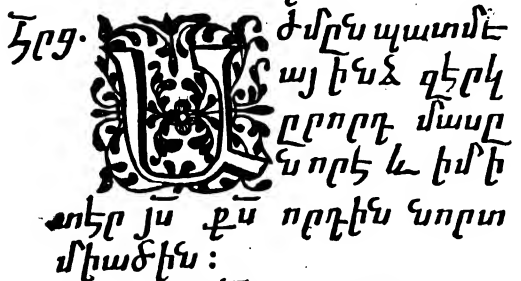 Հրց. Աժմըն պատմէ
այ ինձ զերկ
ըրորդ մասը
նորէ և իմ ի
տեր յս քս որդին նորա
միածին :